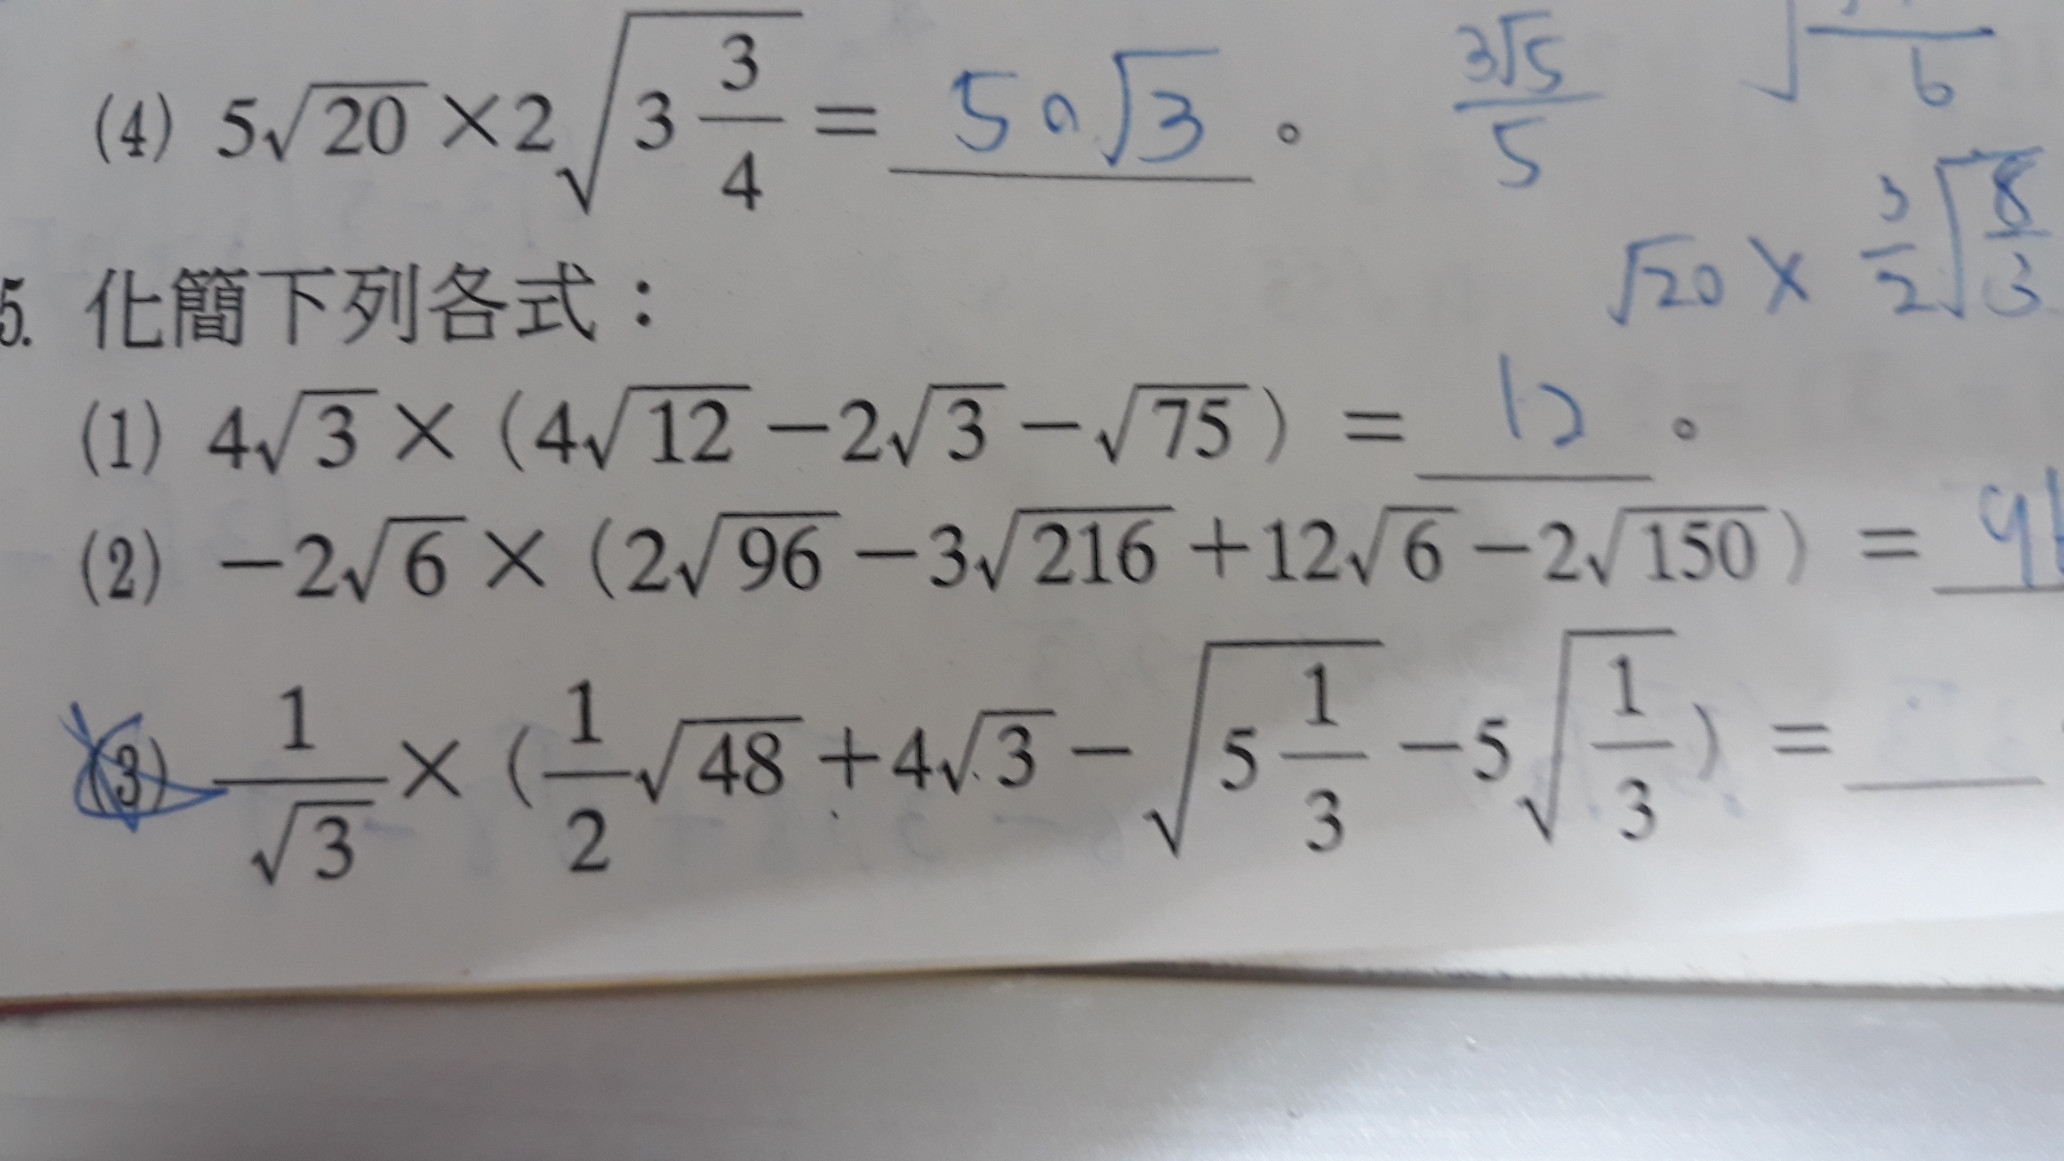 (4) 5√20 ×2√(3 3/4) = 50√3 。
3√5/5
√20 ×
5. 化簡下列各式：
(1) 4√3 × (4√12 −2√3 −√75) = 12 。
(2) −2√6 × (2√96 −3√216 +12√6 −2√150) =
(3) 1/√3 × (1/2 √48 +4√3 −√(5 1/3) −5√(1/3)) =